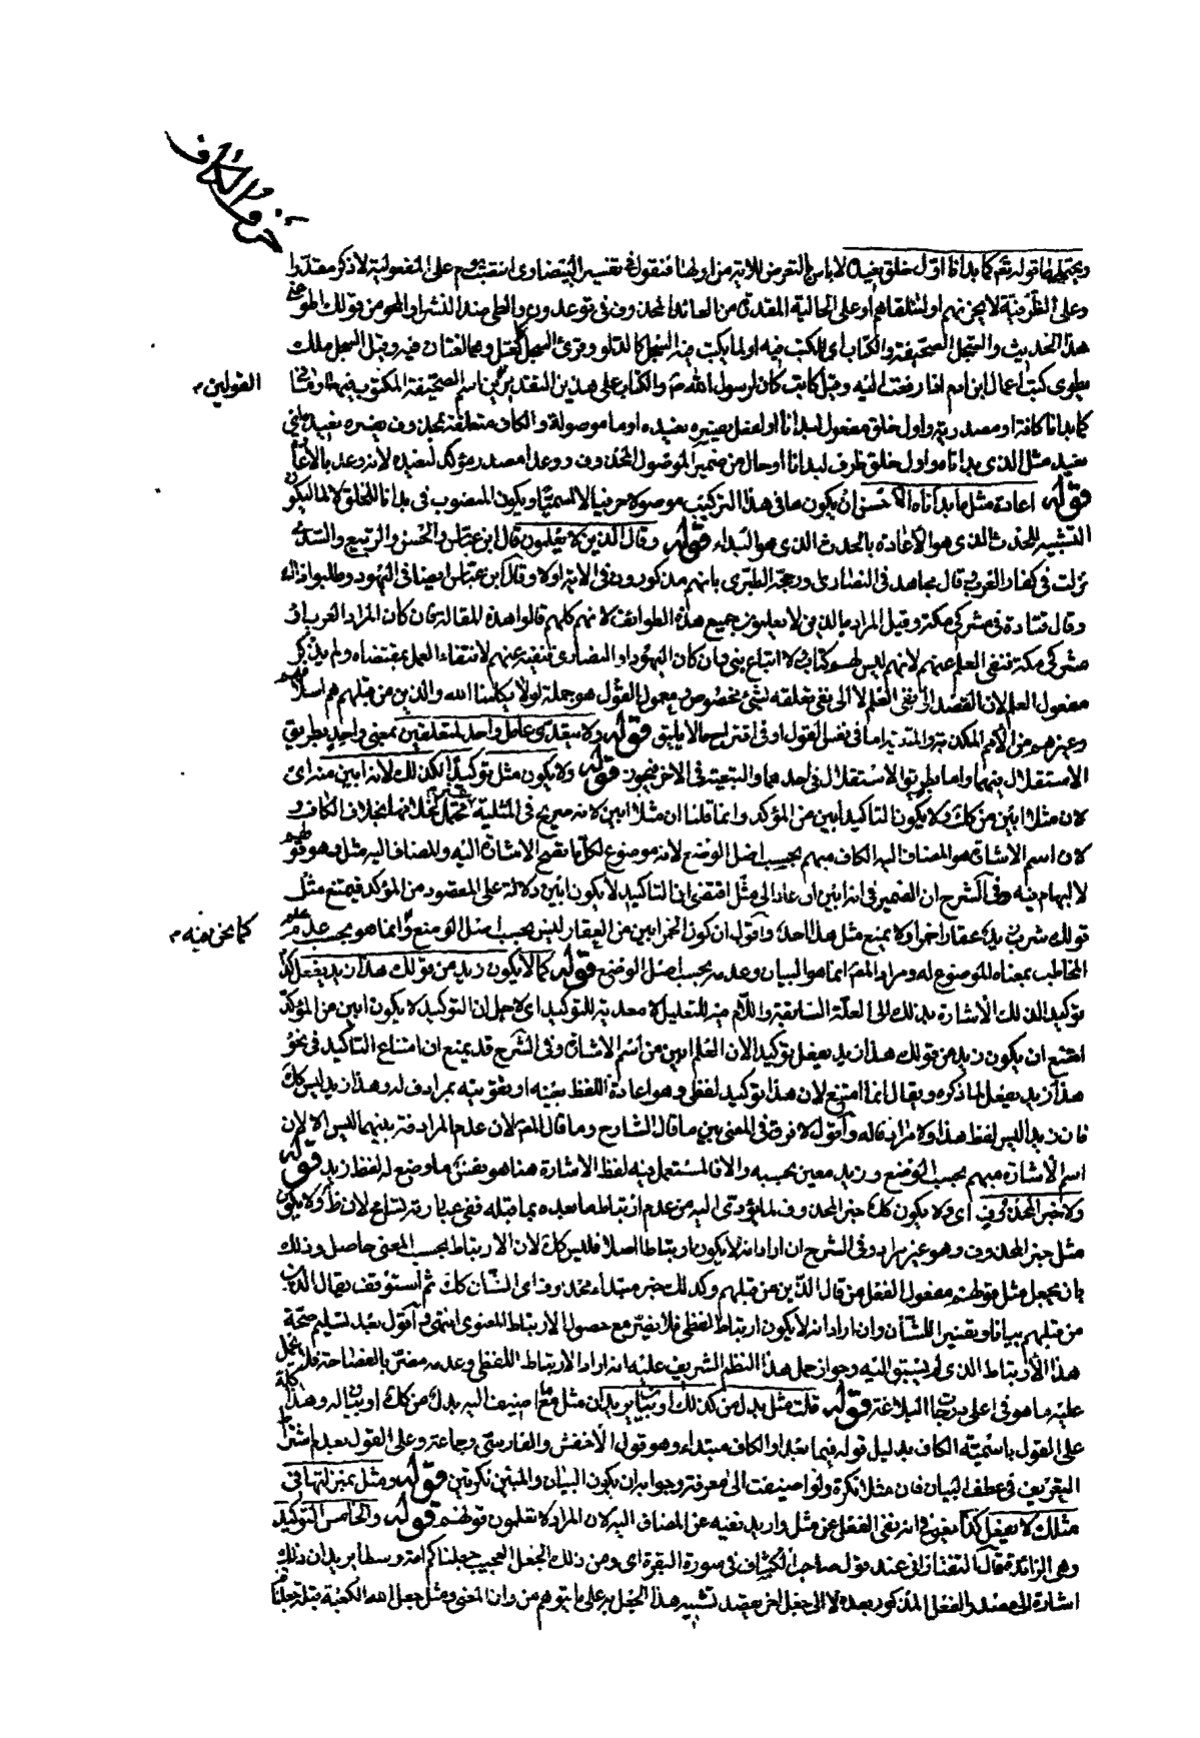 حرف الكاف
ويحتملهما قوله تعم كما بدأنا اول خلق نعيده لا باس بالتعرض للاية من اولها فنقول في تفسير البيضاوى انتصب يوم على المفعولية لاذكر مقدرا
وعلى الظرفية لا يحزنهم او لتتلقاهم او على الحالية المقدرة من العائد المحذوف في توعدون والطى ضد النشر او المحو من قولك اطو عنى
هذا الحديث والسجل الصحيفة والكتاب اى للكتب فيه او لما يكتب فيه السجل كالدلو وقرئ السجل كعتل وهما لغتان فيه وقيل السجل ملك
يطوى كتب اعمال ابن ادم اذا رفعت اليه وقيل كاتب كان لرسول الله ص والكتاب على هذين التقديرين اسم الصحيفة المكتوب فيها وما في
القولين
كما بدأنا كافة او مصدرية واول خلق مفعول لبدأنا او لفعل يفسره نعيده او ما موصولة والكاف متعلقة بمحذوف يفسره نعيده اى
نعيد مثل الذى بدأناه واول خلق ظرف لبدأنا او حال من ضمير الموصول المحذوف ووعدا مصدر مؤكد لنعيده لانه وعد بالاعا
قوله اعادة مثل ما بدأناه الاحسن ان يكون ما في هذا التركيب موصولا حرفيا لا اسميا ويكون المنصوب في بدأنا للخلق لا لما ليكون
التشبيه للحدث الذى هو الاعادة بالحدث الذى هو البداء قوله وقال الذين لا يعلمون قال ابن عباس والحسن والربيع والسدى
نزلت في كفار العرب قال مجاهد في النصارى ورجحه الطبرى بانهم مذكورون في الاية اولا وقال ابن عباس ايضا في اليهود
وقال قتادة في مشركى مكة وقيل المراد بالذين لا يعلمون جميع هذه الطوائف لانهم كلهم قالوا هذه المقالة فان كان المراد العرب او
مشركى مكة فنفى العلم عنهم لانهم ليس لهم كتاب ولا اتباع نبى وان كان اليهود او النصارى فنفيه عنهم لانتفاء العمل بمقتضاه ولم يذكر
مفعول العلم لان القصد الى نفى العلم لا الى نفى تعلقه بشئ مخصوص ومعمول القول هو جملة لولا يكلمنا الله والذين من قبلهم هم اسلافهم
وغيرهم من الامم المكذبة والمثلية اما في نفس القول او في اقتراح ما لا يليق قوله ولا يتعدى عامل واحد لمتعلقين بمعنى واحد بطريق
الاستقلال بينهما واما بطريق الاستقلال في احدهما والتبعية في الاخر فيجوز قوله ولا يكون مثل توكيدا لكذلك لانه ابين منه اى
لان مثلا ابين من كذلك ولا يكون التاكيد ابين من المؤكد وانما قلنا ان مثلا ابين لانه صريح في المثلية بخلاف الكاف و
لان اسم الاشارة هو المضاف اليه الكاف مبهم بحسب اصل الوضع لانه موضوع لكل ما يصح الاشارة اليه والمضاف اليه مثل وهو قولهم
لا ابهام فيه وفي الشرح ان الضمير في انه ابين ان عاد الى مثل اقتضى ان التاكيد لا يكون ابين دلالة على المقصود من المؤكد فيمتنع مثل
قولك شربت عقارا خمرا ولا يمنع مثل هذا احد واقول ان كون الخمر ابين من العقار ليس بحسب اصل الوضع وانما هو بحسب عدم علم
كما نحن فيه
المخاطب بمعناه الموضوع له ومراد المص انما هو البيان وعدمه بحسب اصل الوضع قوله كما لا يكون زيد من قولك هذا زيد يفعل كذا
توكيدا لذلك الاشارة بذلك الى العلة السابقة واللام فيه للتعليل لا معدية للتوكيد اى لاجل ان التوكيد لا يكون ابين من المؤكد
امتنع ان يكون زيد من قولك هذا زيد يفعل توكيدا لان العلم ابين من اسم الاشارة وفي الشرح قد يمنع ان امتناع التاكيد في نحو
هذا زيد يفعل لما ذكره ويقال انما امتنع لان هذا توكيد لفظى وهو اعادة اللفظ بعينه او تقويته بمرادف له وهذا زيد ليس كذلك
فان زيد ليس لفظ هذا ولا مرادفا له واقول لا فرق في المعنى بين ما قال الشارح وما قال المص لان عدم المرادفة بينهما ليس الا لان
اسم الاشارة مبهم بحسب الوضع وزيد معين بحسبه والا فالمستعمل فيه لفظ الاشارة هنا هو نفس ما وضع له لفظ زيد قوله
ولا خبر المحذوف اى ولا يكون كذلك خبر المحذوف لما يؤدى اليه من عدم ارتباط ما بعده بما قبله ففى عبارته تسامح لان ظ ولا يكون
مثل خبر المحذوف وهو غير مراد وفي الشرح ان اراد انه لا يكون ارتباط اصلا فليس كذلك لان الارتباط بحسب المعنى حاصل وذلك
بان يجعل مثل قولهم مفعول الفعل من قال الذين من قبلهم وكذلك خبر مبتداء محذوف اى الشان كذلك ثم استؤنف بقال الذين
من قبلهم بيانا وتفسيرا للشأن وان اراد انه لا يكون ارتباط لفظى فلا يضر مع حصول الارتباط المعنوى انتهى واقول بعد تسليم صحة
هذا الارتباط الذى لم يسبق اليه وجواز حمل هذا النظم الشريف عليه انه اراد الارتباط اللفظى وعدمه مضر بالفصاحة فلا يحمل
عليه ما هو في اعلى درجات البلاغة قوله قلت مثل بدل من كذلك او بيان يريد ان مثل مع ما اضيف اليه بدل من كذلك او بيان له وهذا
على القول باسمية الكاف بدليل قوله فيما بعد او الكاف مبتداء وهو قول الاخفش والفارسى وجماعة وعلى القول بعدم اشتراط
التعريف في عطف البيان فان مثل نكرة ولو اضيفت الى معرفة وجوابه ان يكون البيان والمبين نكرتين قوله ومثل بمنزلتها في
مثلك لا يفعل كذا يعنى في انه نفى الفعل عن مثل واريد نفيه عن المضاف اليه لان المراد لا تعلمون قولهم قوله والخامس التوكيد
وهى الزائدة قال التفتازانى عند قول صاحب الكشاف في سورة البقرة اى ومن ذلك الجعل العجيب جعلناكم امة وسطا يريد ان ذلك
اشارة الى مصدر الفعل المذكور بعده لا الى جعل اخر يقصد تشبيه هذا الجعل به على ما يتوهم من ان المعنى ومثل جعل الله الكعبة قبلة جعلناكم